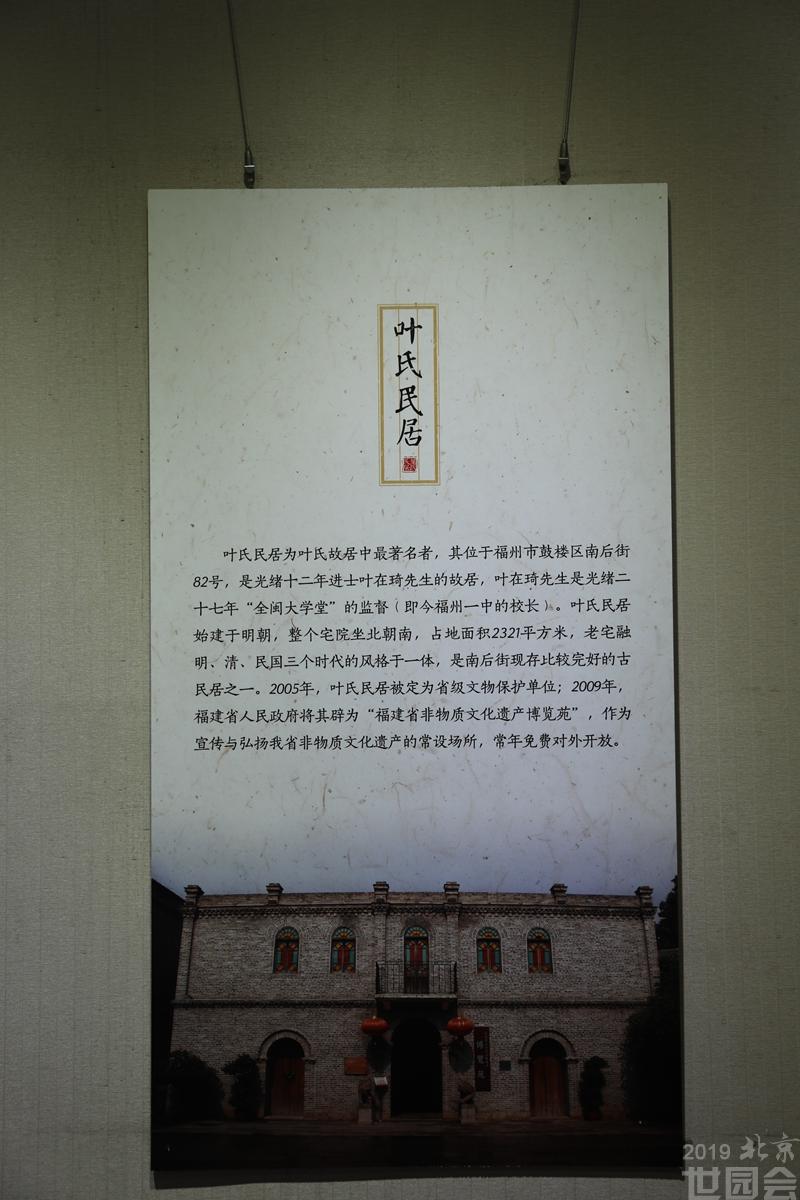 叶氏民居
叶氏民居为叶氏故居中最著名者，其位于福州市鼓楼区南后街
82号，是光绪十二年进士叶在琦先生的故居，叶在琦先生是光绪二
十七年“全闽大学堂”的监督（即今福州一中的校长）。叶氏民居
始建于明朝，整个宅院坐北朝南，占地面积2321平方米，老宅融
明、清、民国三个时代的风格于一体，是南后街现存比较完好的古
民居之一。2005年，叶氏民居被定为省级文物保护单位；2009年，
福建省人民政府将其辟为“福建省非物质文化遗产博览苑”，作为
宣传与弘扬我省非物质文化遗产的常设场所，常年免费对外开放。
博覽苑
2019 北京
世园会